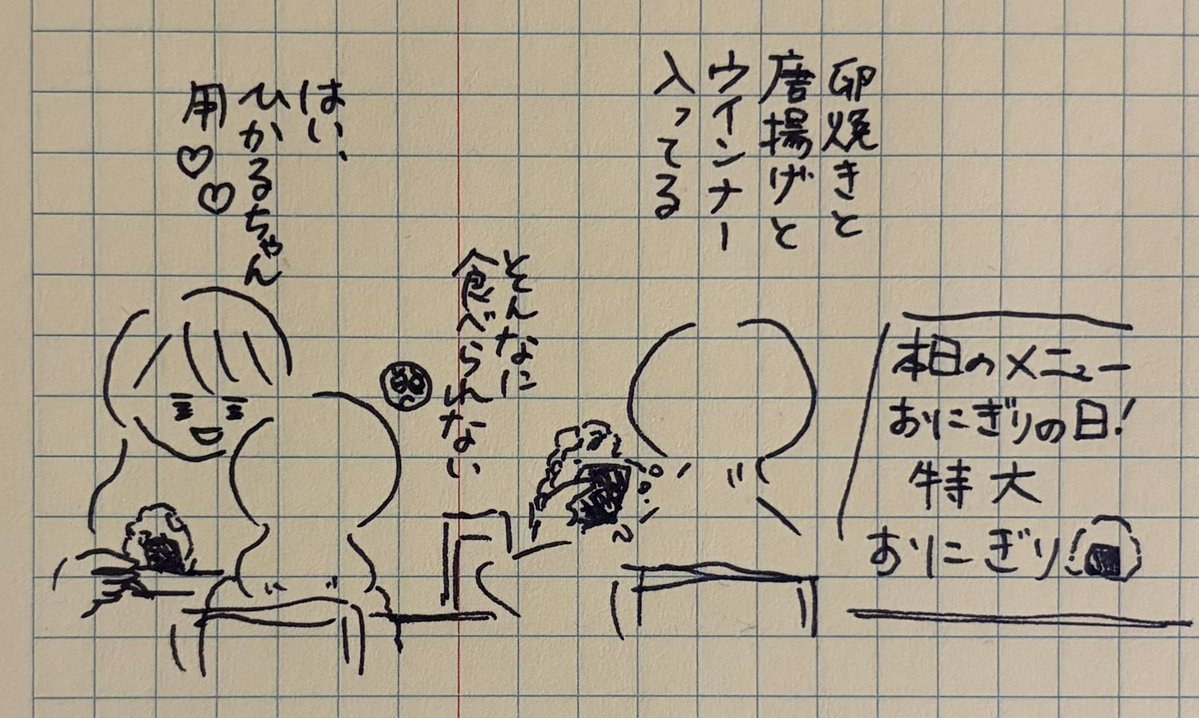 本日のメニュー
おりこぎりの日!
特大
おりこぎり
卵焼きと
唐揚げと
ウインナー
入ってる
そんなに
食べられない
はい、
ひかるちゃん
用♡♡